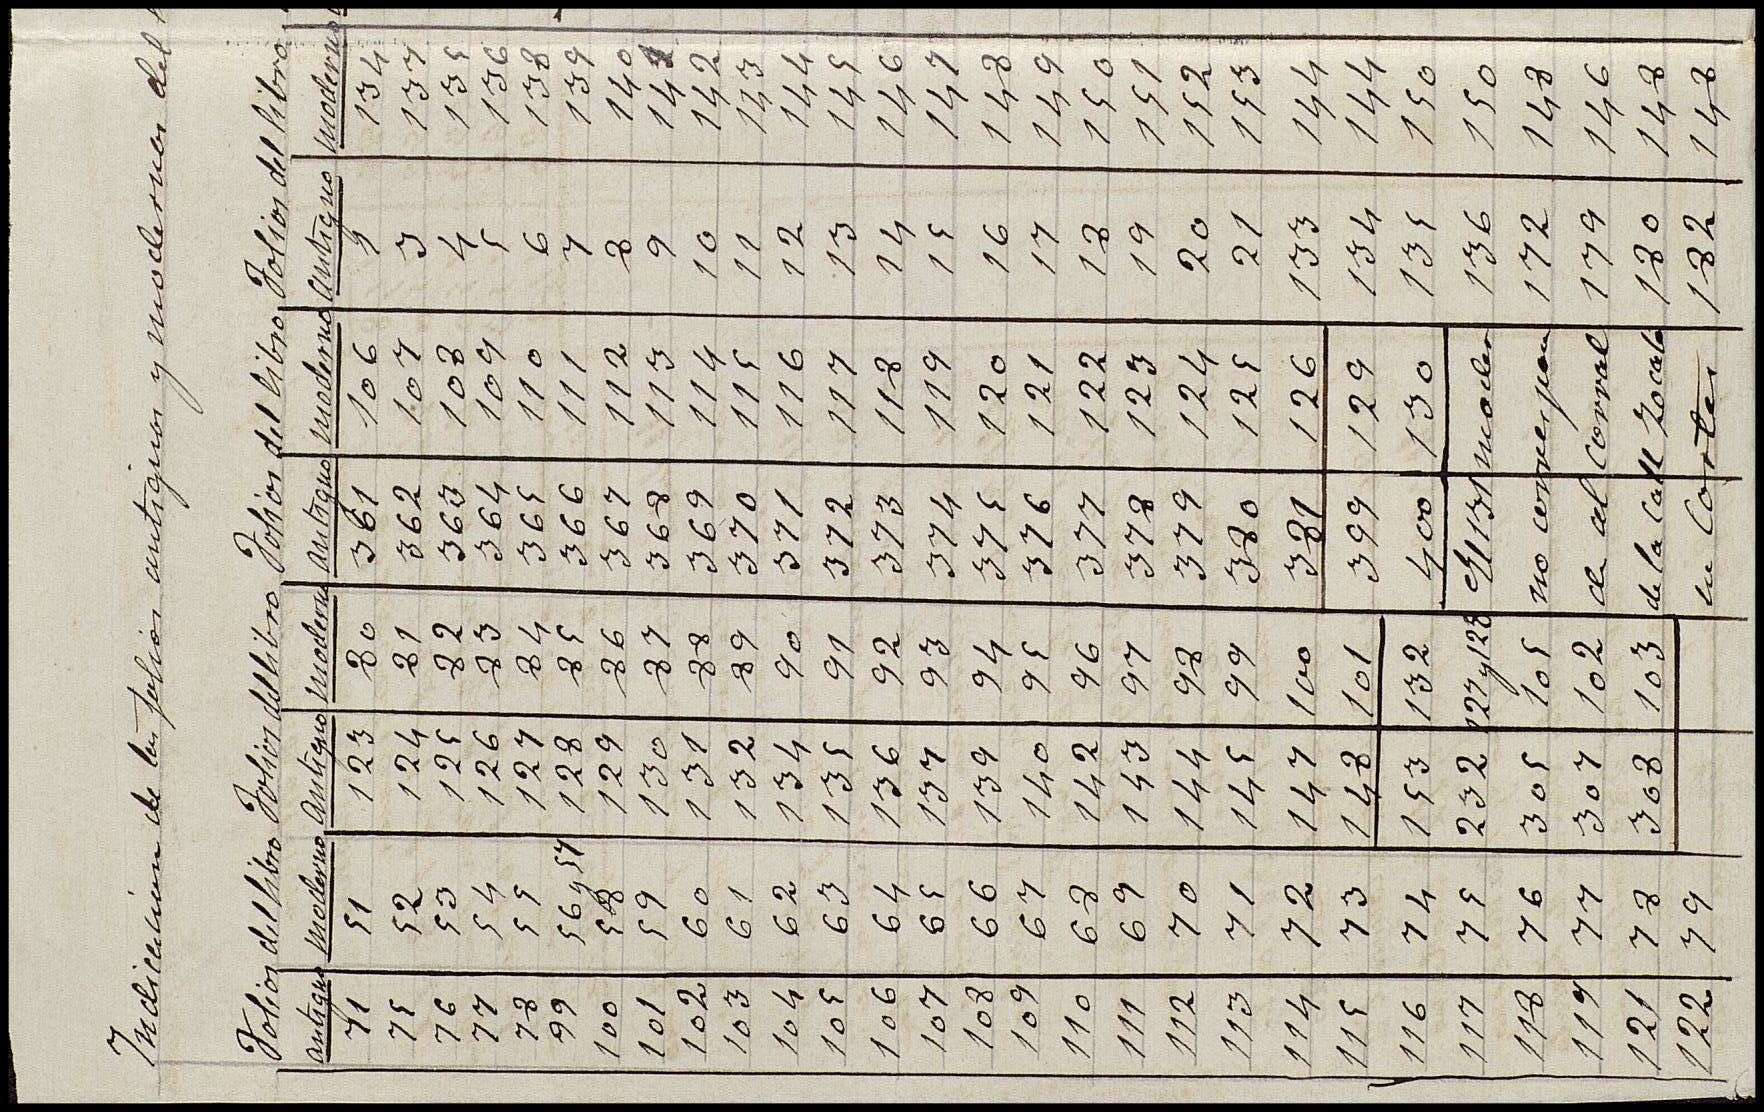 Indicacion de los folios antiguos y modernos del
Folios del libro Folios del libro Folios del libro Folios del libro
antiguo moderno antiguo moderno antiguo moderno antiguo moderno
71 51 123 80 361 106 1 134
75 52 124 81 362 107 3 137
76 53 125 82 363 108 4 135
77 54 126 83 364 109 5 136
78 55 127 84 365 110 6 138
99 56 y 57 128 85 366 111 7 139
100 58 129 86 367 112 8 140
101 59 130 87 368 113 9 141
102 60 131 88 369 114 10 142
103 61 132 89 370 115 11 143
104 62 134 90 371 116 12 144
105 63 135 91 372 117 13 145
106 64 136 92 373 118 14 146
107 65 137 93 374 119 15 147
108 66 139 94 375 120 16 148
109 67 140 95 376 121 17 149
110 68 142 96 377 122 18 150
111 69 143 97 378 123 19 151
112 70 144 98 379 124 20 152
113 71 145 99 380 125 21 153
114 72 147 100 381 126 133 144
115 73 148 101 399 129 134 144
116 74 153 132 400 130 135 150
117 75 232 127 y 128 El 131 moder 136 150
118 76 305 105 no correspon 172 148
119 77 307 102 de al Corral 179 146
121 78 308 103 de la Calle 180 148
122 79 en Cortes 182 148